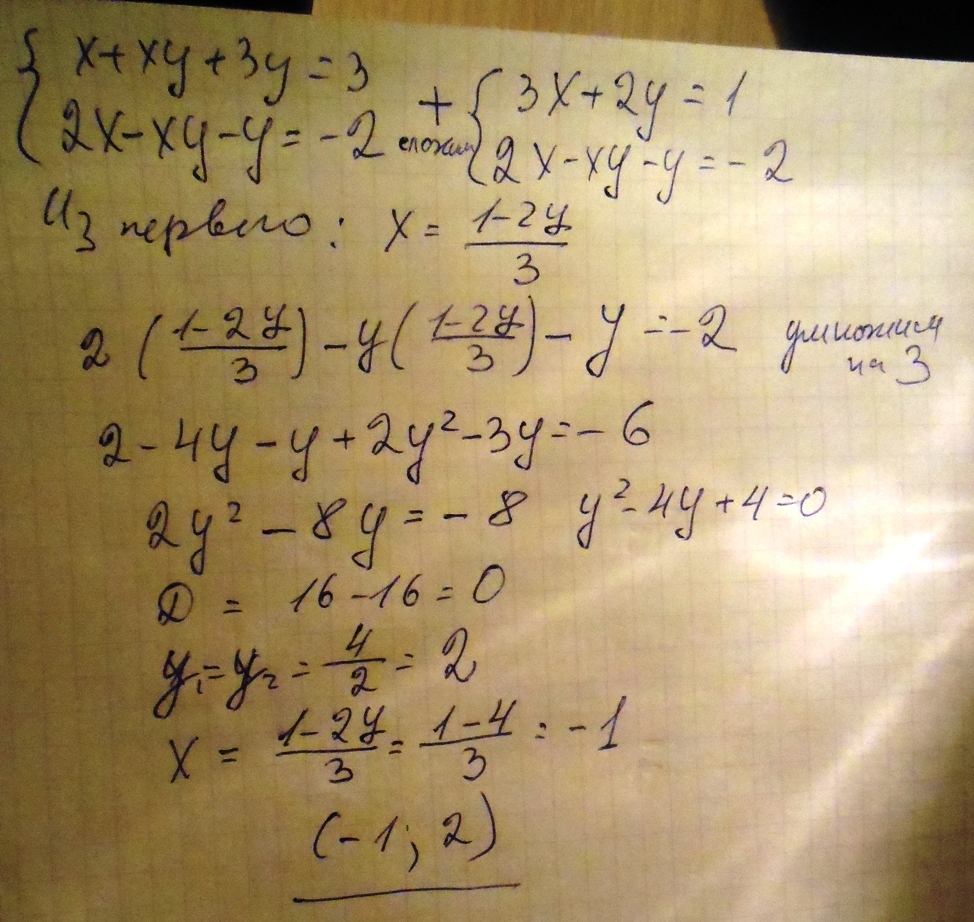 { x + xy + 3y = 3
2x - xy - y = -2
+ сложим
{ 3x + 2y = 1
2x - xy - y = -2
Из первого: x = (1-2y)/3
2 ((1-2y)/3) - y((1-2y)/3) - y = -2 умножим на 3
2 - 4y - y + 2y² - 3y = -6
2y² - 8y = -8 y² - 4y + 4 = 0
D = 16 - 16 = 0
y₁ = y₂ = 4/2 = 2
x = (1-2y)/3 = (1-4)/3 = -1
(-1; 2)